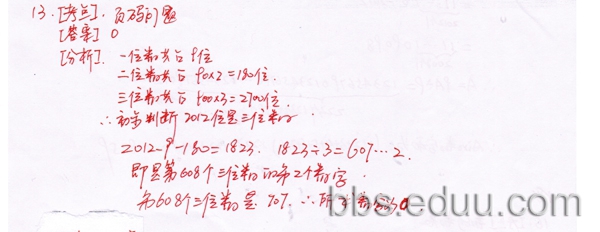 13.[考点].页码问题
[答案] 0
[分析].一位数共占9位
二位数共占90×2=180位.
三位数共占900×3=2700位.
∴初步判断2012位是三位数的
2012-9-180=1823. 1823÷3=607…2.
即是第608个三位数的第2个数字.
第608个三位数是707.∴所
bbs.eduu.com